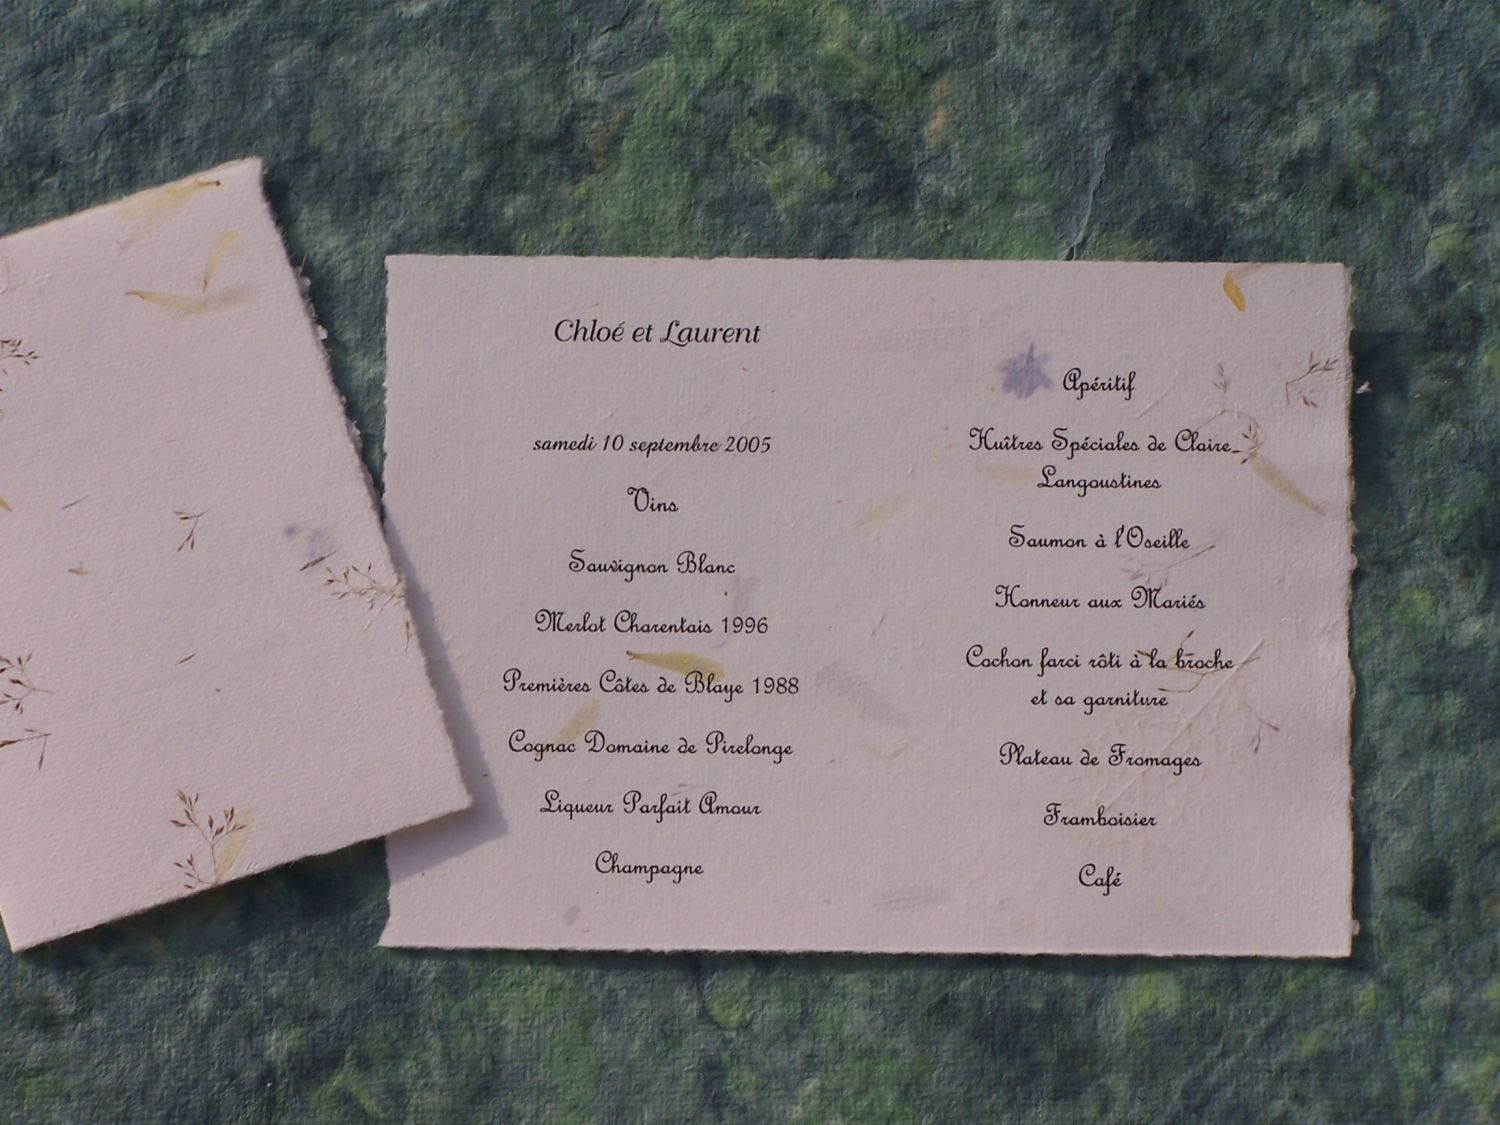 Chloé et Laurent
samedi 10 septembre 2005
Vins
Sauvignon Blanc
Merlot Charentais 1996
Premières Côtes de Blaye 1988
Cognac Domaine de Pirelonge
Liqueur Parfait Amour
Champagne
Apéritif
Huîtres Spéciales de Claire_
Langoustines
Saumon à l'Oseille
Honneur aux Mariés
Cochon farci rôti à la broche
et sa garniture
Plateau de Fromages
Framboisier
Café